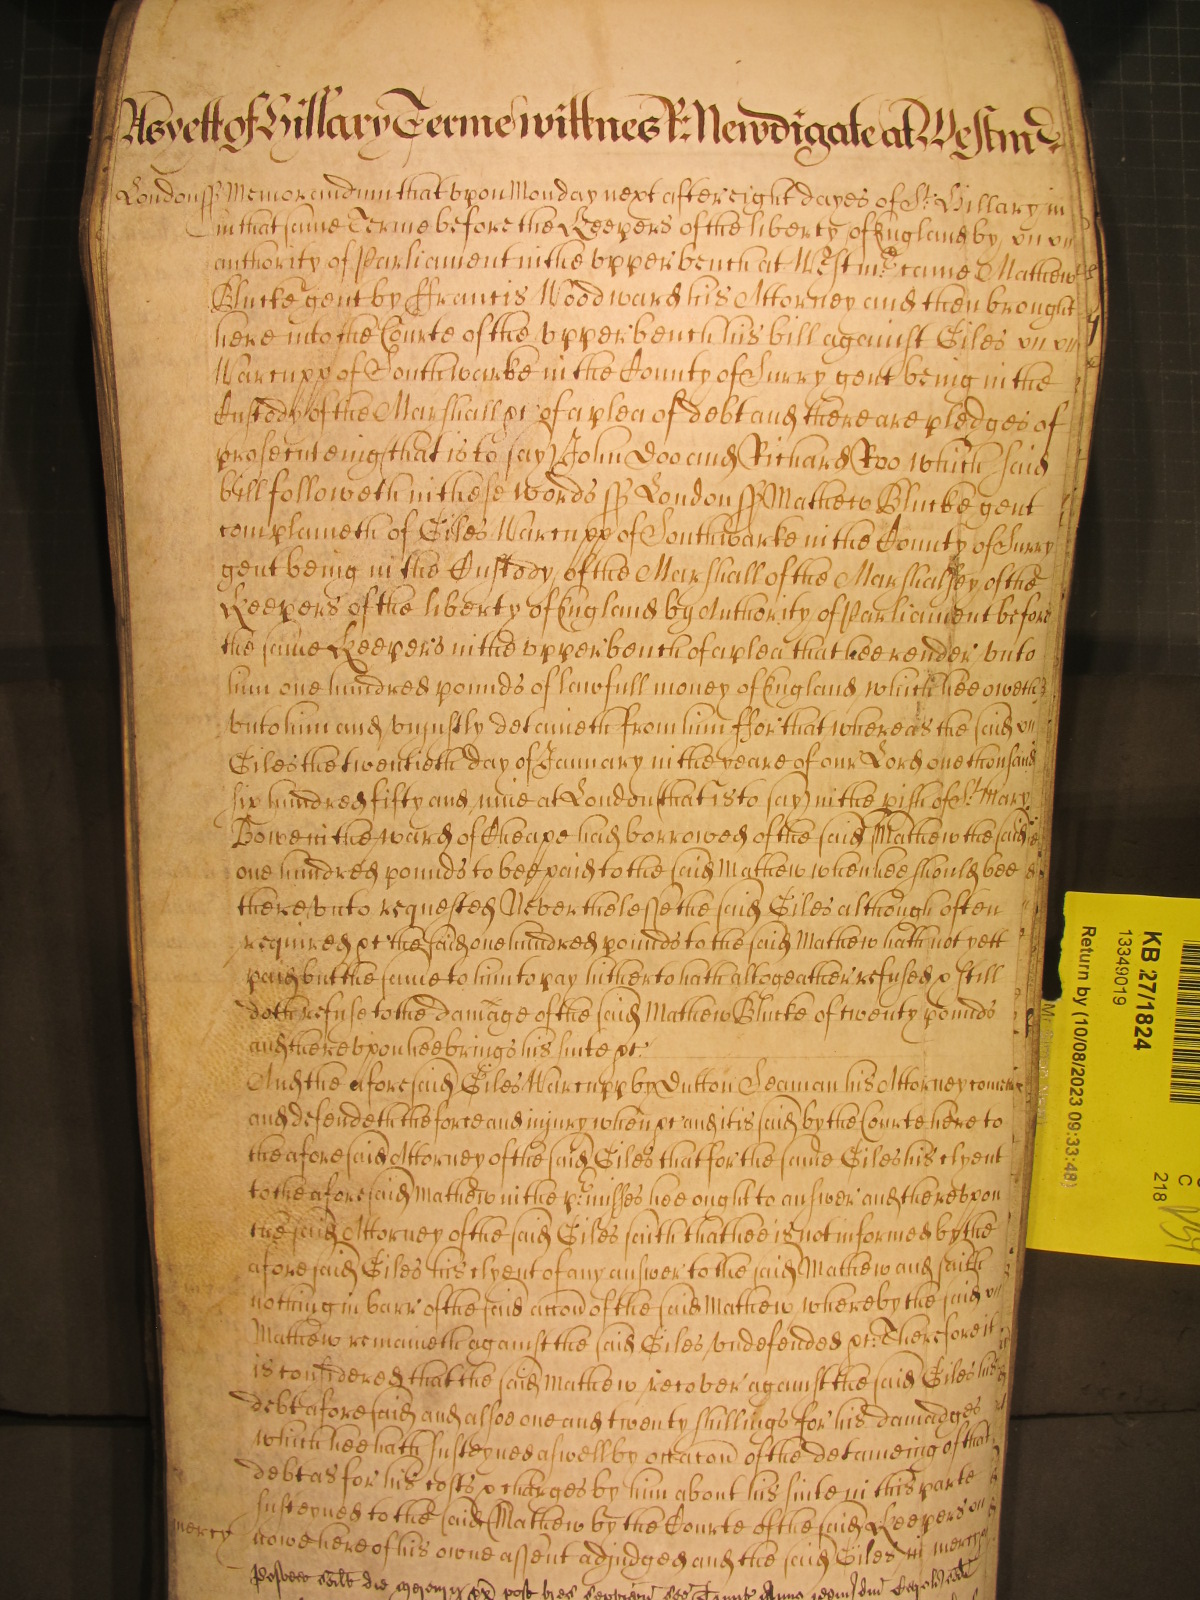 As yett of Hillary Terme wittnes R: Newdigate at Westmr
London ss Memorandum that vpon Monday next after eight dayes of St. Hillary in
in that same Terme before the Keepers of the liberty of England by
authority of Parliament in the vpper bench at Westmr. came Mathew
Blucke gent by Ffrancis Woodward his Attorney and then brought
here into the Courte of the vpper bench his bill against Giles
Warcupp of Southwarke in the County of Surry gent being in the
Custody of the Marshall &c of a plea of debt and there are pledges of
prosecuteing (that is to say) John Doo and Richard Roo which said
bill followeth in these words ss London ss Mathew Blucke gent
complaineth of Giles Warcupp of Southwarke in the County of Surry
gent being in the Custody of the Marshall of the Marshalsey of the
Keepers of the liberty of England by Authority of Parliament before
the same Keepers in the vpper bench of a plea that hee render vnto
him one hundred pounds of lawfull money of England which hee oweth
vnto him and vniustly detaineth from him ffor that whereas the said
Giles the twentieth day of January in the yeare of our Lord one thousand
six hundred fifty and nine at London (that is to say) in the pish of St. Mary
Bowe in the ward of Cheape had borrowed of the said Mathew the said
one hundred pounds to bee paid to the said Mathew when hee should bee
therevnto requested Neverthelesse the said Giles although often
required &c the said one hundred pounds to the said Mathew hath not yett
paid but the same to him to pay hitherto hath altogeather refused & still
doth refuse to the damage of the said Mathew Blucke of twenty pounds
and therevpon hee brings his suite &c
And the aforesaid Giles Warcupp by Dutton Seaman his Attorney cometh
and defendeth the force and iniury when &c and it is said by the Courte here to
the aforesaid Attorney of the said Giles that for the same Giles his clyent
to the aforesaid Mathew in the pmisses hee ought to answer and therevpon
the said Attorney of the said Giles saith that hee is not informed by the
aforesaid Giles his clyent of any answer to the said Mathew and saith
nothing in barr of the said accon of the said Mathew whereby the said
Mathew remaineth against the said Giles vndefended &c Therefore it
is considered that the said Mathew recover against the said Giles his
debt aforesaid and alsoe one and twenty shillings for his damadges
which hee hath susteyned aswell by occacon of the detaineing of that
debt as for his costs & charges by him about his suite in this parte
susteyned to the said Mathew by the Courte of the said Keepers
mercy nowe here of his owne assent adjudged and the said Giles in mercy
KB 27/1824
13349019
Return by (10/08/2023 09:33:48)
218
C